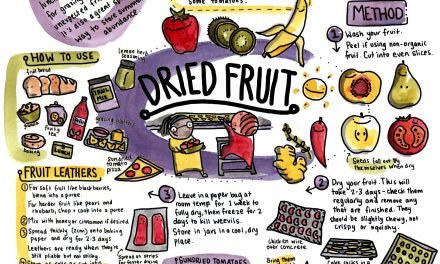 for grazing
unexpected fr
it's also a great
way to store summer
abundance
some tomatoes.
METHOD
1 Wash your fruit.
Peel if using non-organic
fruit. Cut into even slices.
HOW TO USE
fruit bread
lemon herb
seasoning
TRAIL
MIX
fruity
tea
grazing platters
baking
LUNCH
sundried
tomato
pizza
DRIED FRUIT
Seeds fall out by
themselves when dry
2 Dry your fruit. This will
take 2-3 days - check them
regularly and remove any
that are finished. They
should be slightly chewy, not
crispy or squishy.
chicken wire
over concrete
3 Leave in a paper bag at
room temp for 1 week to
fully dry, then freeze for 2
days to kill weevils.
Store in jars in a cool, dry
place.
FRUIT LEATHERS
1 For soft fruit like blackberries,
blend into a puree.
For harder fruit like pears and
rhubarb, chop + cook into a puree.
2 Mix with honey or cinnamon if desired
3 Spread thickly (2cm) onto baking
paper and dry for 2-3 days
Leathers are ready when they're
still pliable but not sticky.
Spread as strips
for faster drying
POUNDRIED TOMATOES